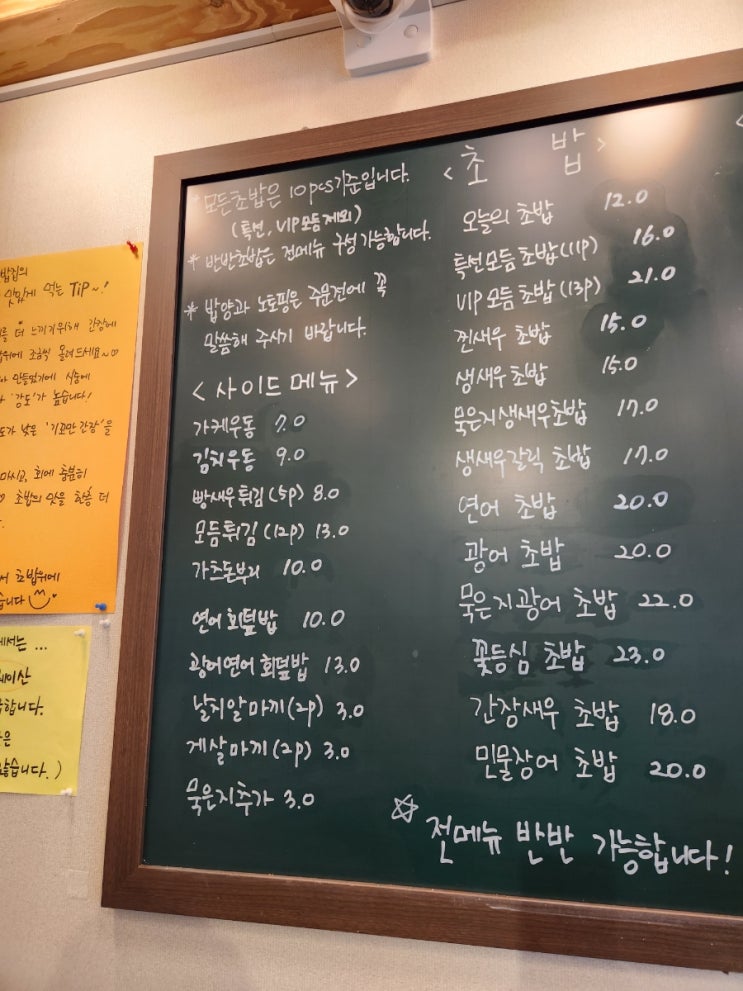 밥집의
맛있게 먹는 TIP~!
더 느끼기위해 간장에
밥위에 조금씩 올려드세요~♡
만들었기에 식중에
'강도'가 높습니다!
도가 낮은 '기꼬만 간장'을
마시고, 회에 충분히
초밥의 맛을 한층 더
초밥위에
습니다
에서는 ...
레이산
합니다.
않습니다.)
* 모든초밥은 10pcs기준입니다.
(특선, VIP모듬 제외)
* 반반초밥은 전메뉴 구성 가능합니다.
* 밥양과 노토핑은 주문전에 꼭
말씀해 주시기 바랍니다.
<사이드 메뉴>
가케우동 7.0
김치우동 9.0
빵새우튀김(5p) 8.0
모듬튀김(12p) 13.0
가츠돈부리 10.0
연어 회덮밥 10.0
광어연어 회덮밥 13.0
날치알마끼(2p) 3.0
게살마끼(2p) 3.0
묵은지추가 3.0
<초 밥>
오늘의 초밥 12.0
특선모듬초밥(11p) 16.0
VIP모듬초밥(13p) 21.0
찐새우 초밥 15.0
생새우 초밥 15.0
묵은지생새우초밥 17.0
생새우갈릭 초밥 17.0
연어 초밥 20.0
광어 초밥 20.0
묵은지광어 초밥 22.0
꽃등심 초밥 23.0
간장새우 초밥 18.0
민물장어 초밥 20.0
☆ 전메뉴 반반 가능합니다!